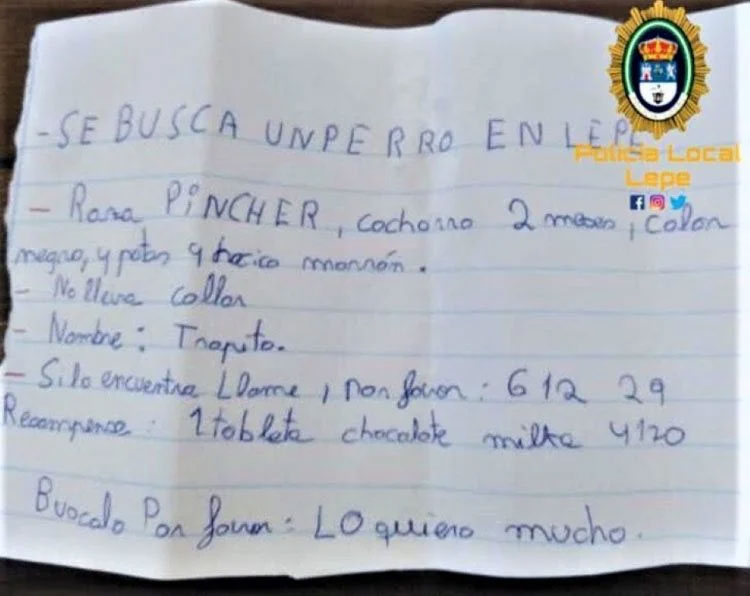 -SE BUSCA UN PERRO EN LEPE
Policía Local
Lepe
- Raza PiNCHER, cachorro 2 meses, color
negro, y patas y hocico marrón.
- No lleva collar
- Nombre: Trapito.
- Si lo encuentra LLame, por favor: 6 12 29
Recompensa: 1 tableta chocolate milka 4120
Buscalo Por favor: LO quiero mucho.